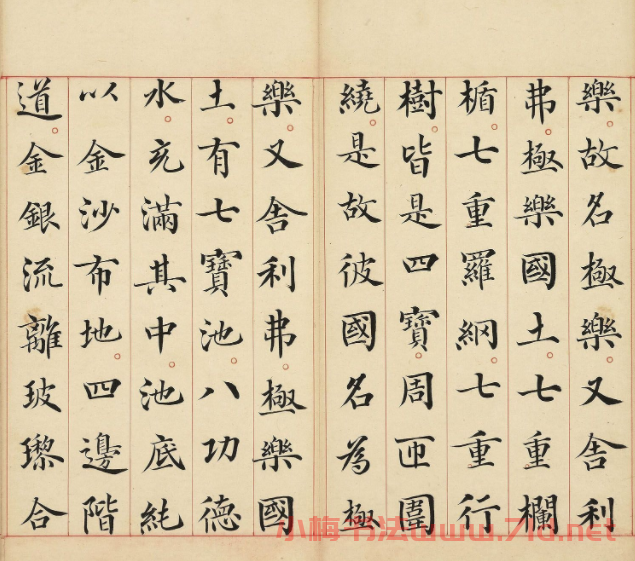 樂。故名極樂。又舍利
弗。極樂國土。七重欄
楯。七重羅網。七重行
樹。皆是四寶。周匝圍
繞。是故彼國名為極
樂。又舍利弗。極樂國
土。有七寶池。八功德
水。充滿其中。池底純
以金沙布地。四邊階
道。金銀流離玻瓈合
小梅书法www.71d.net